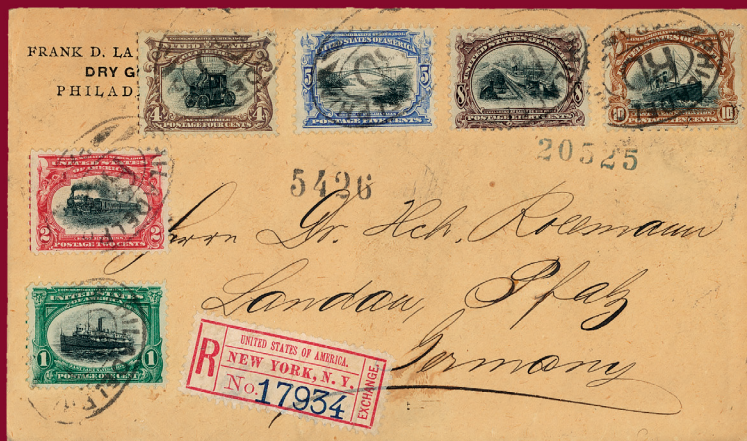 FRANK D. LA
DRY G
PHILAD
UNITED STATES OF AMERICA
4 4
POSTAGE FOUR CENTS
UNITED STATES OF AMERICA
5 5
POSTAGE FIVE CENTS
UNITED STATES OF AMERICA
8 8
POSTAGE EIGHT CENTS
10 10
POSTAGE TEN CENTS
20525
5426
UNITED STATES
OF AMERICA
2 2
POSTAGE TWO CENTS
Herrn Dr. Hch.
Landau, Pfalz
Germany
UNITED STATES
OF AMERICA
1 1
POSTAGE ONE CENT
R
UNITED STATES OF AMERICA.
NEW YORK, N. Y.
No. 17934
EXCHANGE